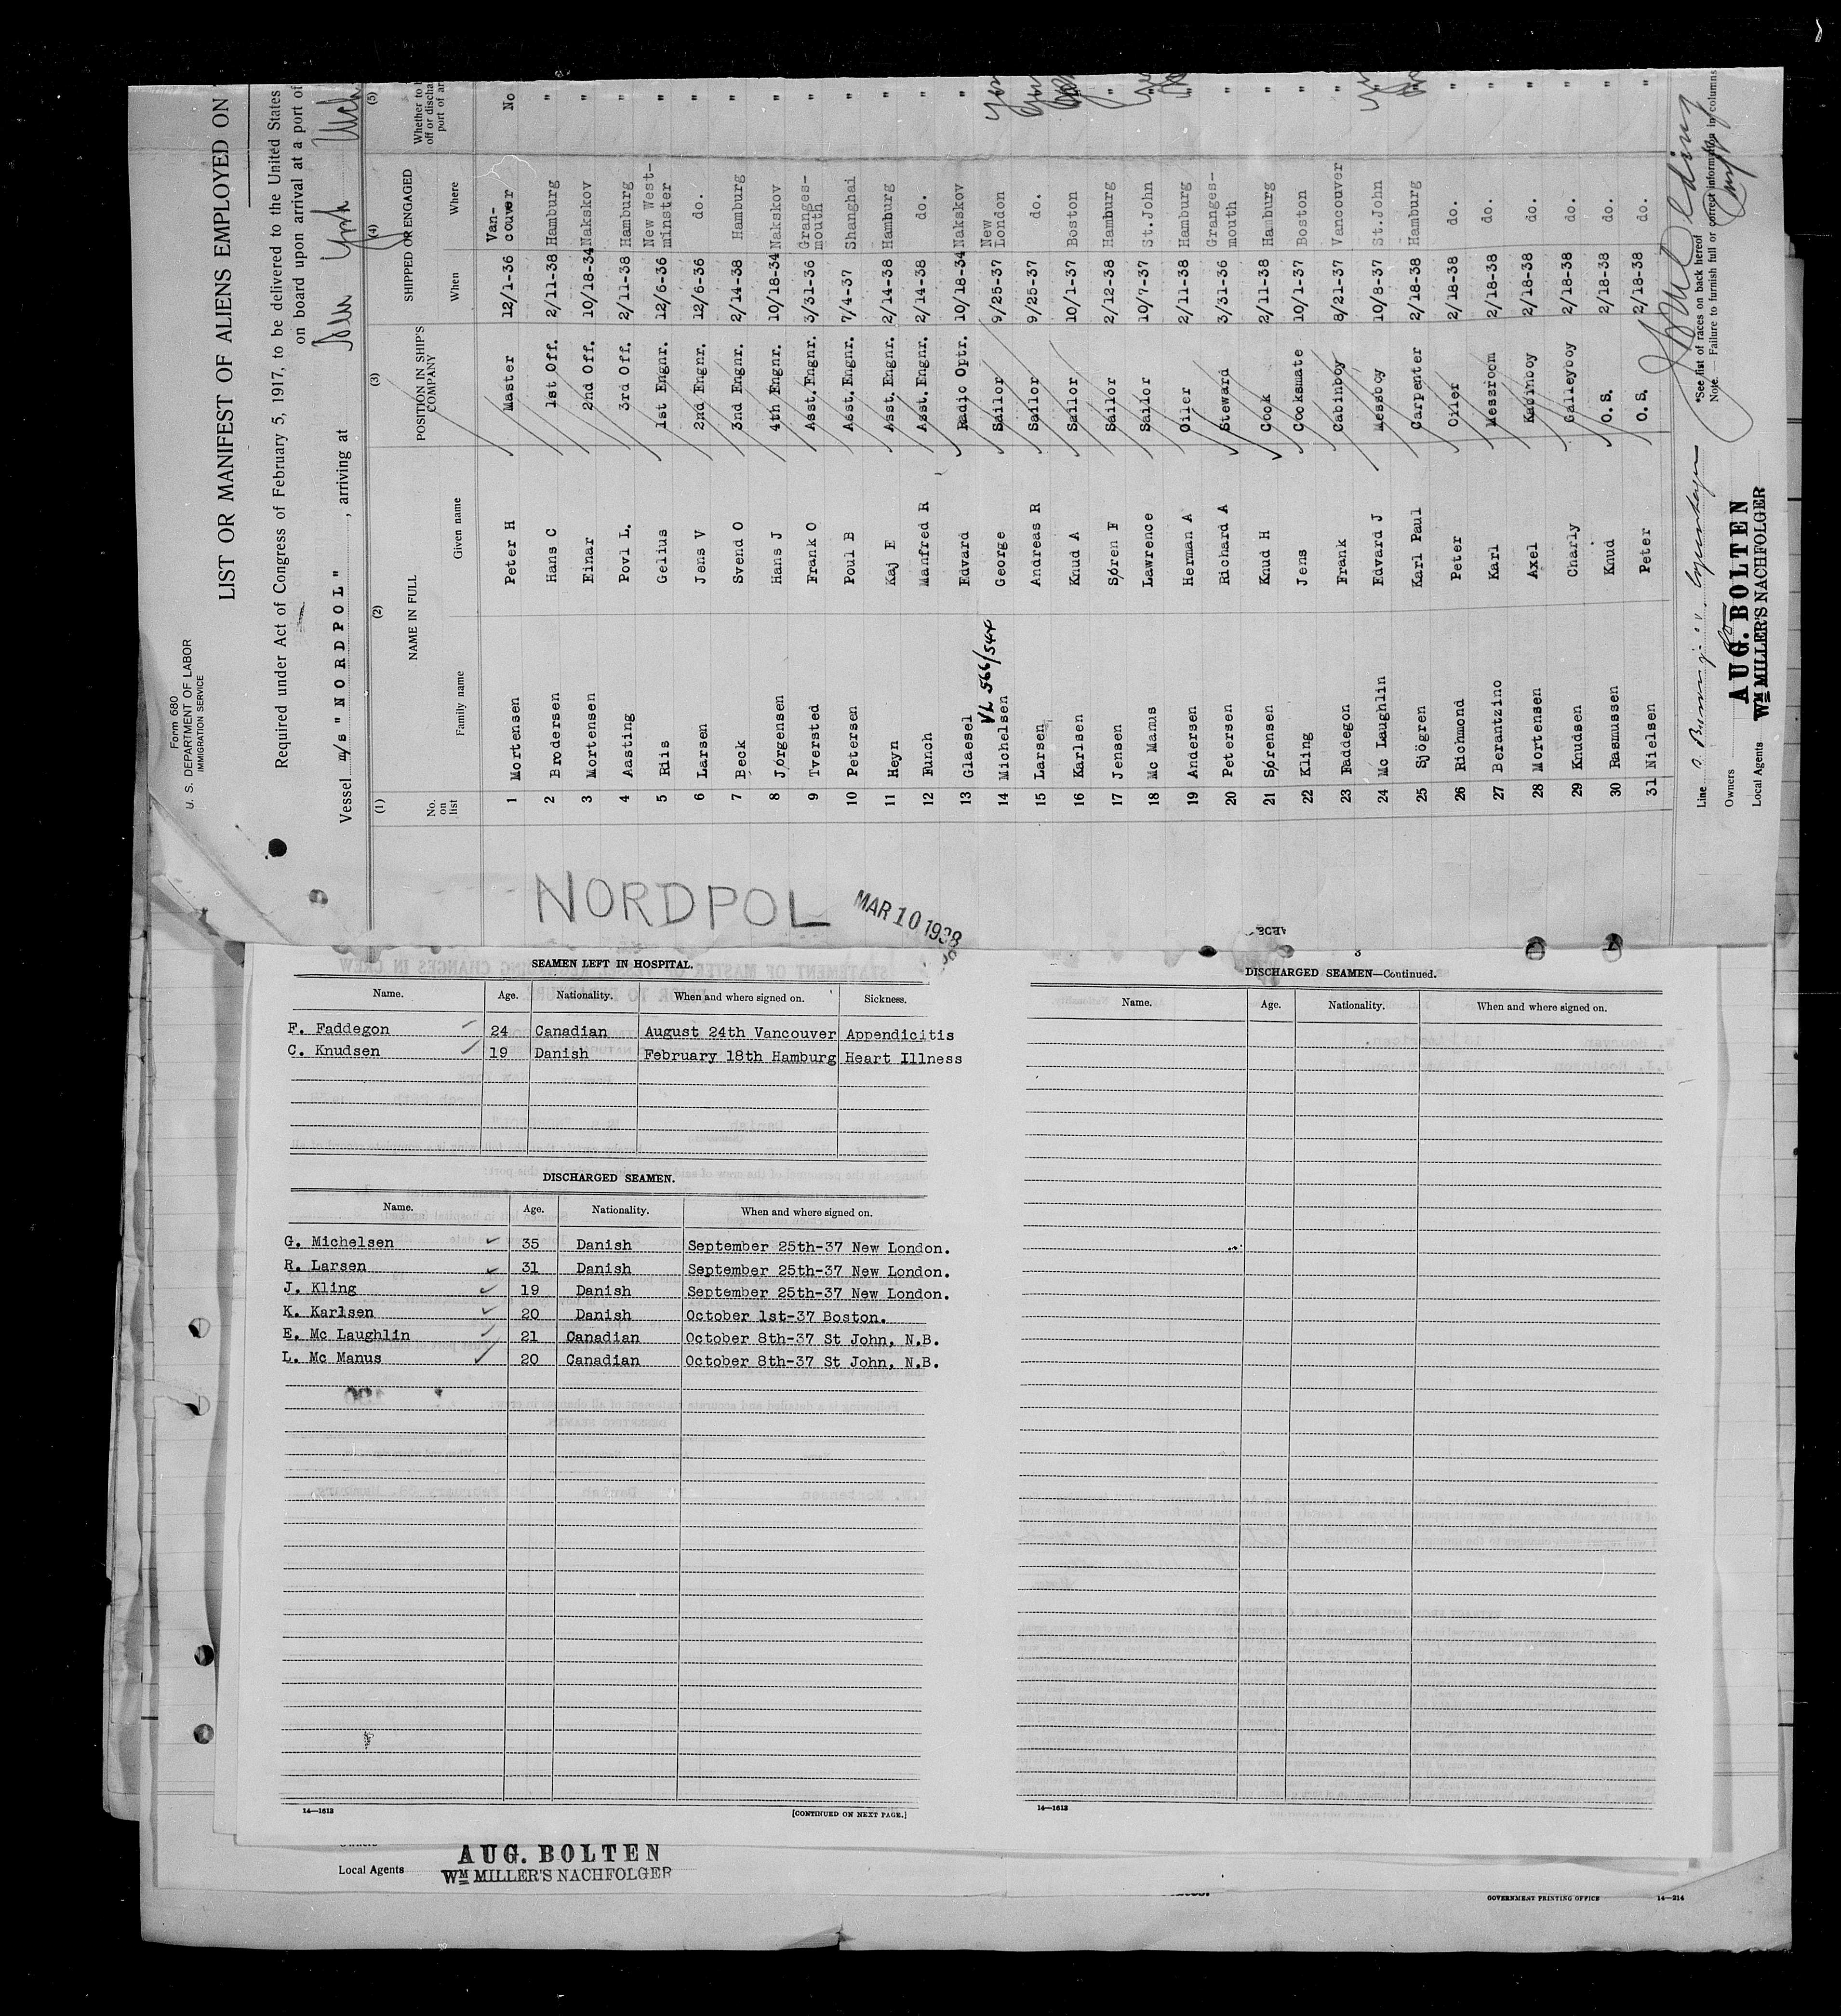 Form 680
U. S. DEPARTMENT OF LABOR
IMMIGRATION SERVICE
LIST OR MANIFEST OF ALIENS EMPLOYED ON
Required under Act of Congress of February 5, 1917, to be delivered to the United States
on board upon arrival at a port of
Vessel m/s "NORDPOL", arriving at New York
(1) (2) (3) (4) (5)
No. on list NAME IN FULL POSITION IN SHIP'S COMPANY SHIPPED OR ENGAGED Whether to
off or discha
port of ar
Family name Given name When Where
1 Mortensen Peter H Master 12/1-36 Van-couver No
2 Brodersen Hans C 1st Off. 2/11-38 Hamburg "
3 Mortensen Einar 2nd Off. 10/18-34 Nakskov "
4 Aasting Povl L. 3rd Off. 2/11-38 Hamburg "
5 Riis Gelius 1st Engnr. 12/6-36 New West-minster "
6 Larsen Jens V 2nd Engnr. 12/6-36 do. "
7 Beck Svend O 3nd Engnr. 2/14-38 Hamburg "
8 Jørgensen Hans J 4th Engnr. 10/18-34 Nakskov "
9 Tversted Frank O Asst. Engnr. 3/31-36 Granges-mouth "
10 Petersen Poul B Asst. Engnr. 7/4-37 Shanghai "
11 Heyn Kaj E Asst. Engnr. 2/14-38 Hamburg "
12 Funch Manfred R Asst. Engnr. 2/14-38 do. "
13 Glaesel Edvard Radio Optr. 10/18-34 Nakskov "
VL 566/544
14 Michelsen George Sailor 9/25-37 New London
15 Larsen Andreas R Sailor 9/25-37 do.
16 Karlsen Knud A Sailor 10/1-37 Boston
17 Jensen Søren F Sailor 2/12-38 Hamburg "
18 Mc Manus Lawrence Sailor 10/7-37 St.John "
19 Andersen Herman A Oiler 2/11-38 Hamburg "
20 Petersen Richard A Steward 3/31-36 Granges-mouth "
21 Sørensen Knud H Cook 2/11-38 Hamburg "
22 Kling Jens Cooksmate 10/1-37 Boston "
23 Faddegon Frank Cabinboy 8/21-37 Vancouver "
24 Mc Laughlin Edvard J Messboy 10/8-37 St.John "
25 Sjögren Karl Paul Carpenter 2/18-38 Hamburg "
26 Richmond Peter Oiler 2/18-38 do. "
27 Berantzino Karl Messroom 2/18-38 do. "
28 Mortensen Axel Kabinboy 2/18-38 do. "
29 Knudsen Charly Galleyboy 2/18-38 do. "
30 Rasmussen Knud O.S. 2/18-38 do. "
31 Nielsen Peter O.S. 2/18-38 do. "
Line
*See list of races on back hereof
Note.—Failure to furnish full or correct information in columns
Owners
AUG. BOLTEN
Local Agents WM MILLER'S NACHFOLGER
NORDPOL
MAR 10 1938
SEAMEN LEFT IN HOSPITAL.
Name. Age. Nationality. When and where signed on. Sickness.
F. Faddegon 24 Canadian August 24th Vancouver Appendicitis
C. Knudsen 19 Danish February 18th Hamburg Heart Illness
DISCHARGED SEAMEN.
Name. Age. Nationality. When and where signed on.
G. Michelsen 35 Danish September 25th-37 New London.
R. Larsen 31 Danish September 25th-37 New London.
J. Kling 19 Danish September 25th-37 New London.
K. Karlsen 20 Danish October 1st-37 Boston.
E. Mc Laughlin 21 Canadian October 8th-37 St John, N.B.
L. Mc Manus 20 Canadian October 8th-37 St John, N.B.
14—1613
[CONTINUED ON NEXT PAGE.]
3
DISCHARGED SEAMEN—Continued.
Name. Age. Nationality. When and where signed on.
14—1613
Local Agents
AUG. BOLTEN
WM MILLER'S NACHFOLGER
GOVERNMENT PRINTING OFFICE
14—214